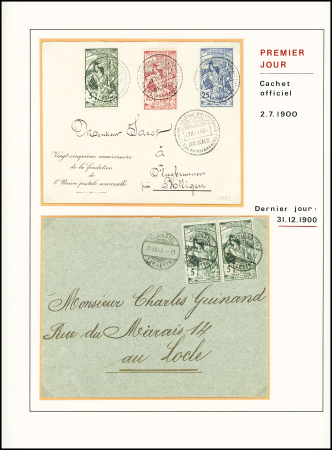 PREMIER
JOUR
Cachet
officiel
2.7.1900
25
Monsieur
à
près Bolligen
Vingt-cinquième anniversaire
de la fondation
de l'Union postale universelle
BERNE
Dernier jour:
31.12.1900
5
5
Monsieur Charles Guinand
Rue du Marais 14
au Locle